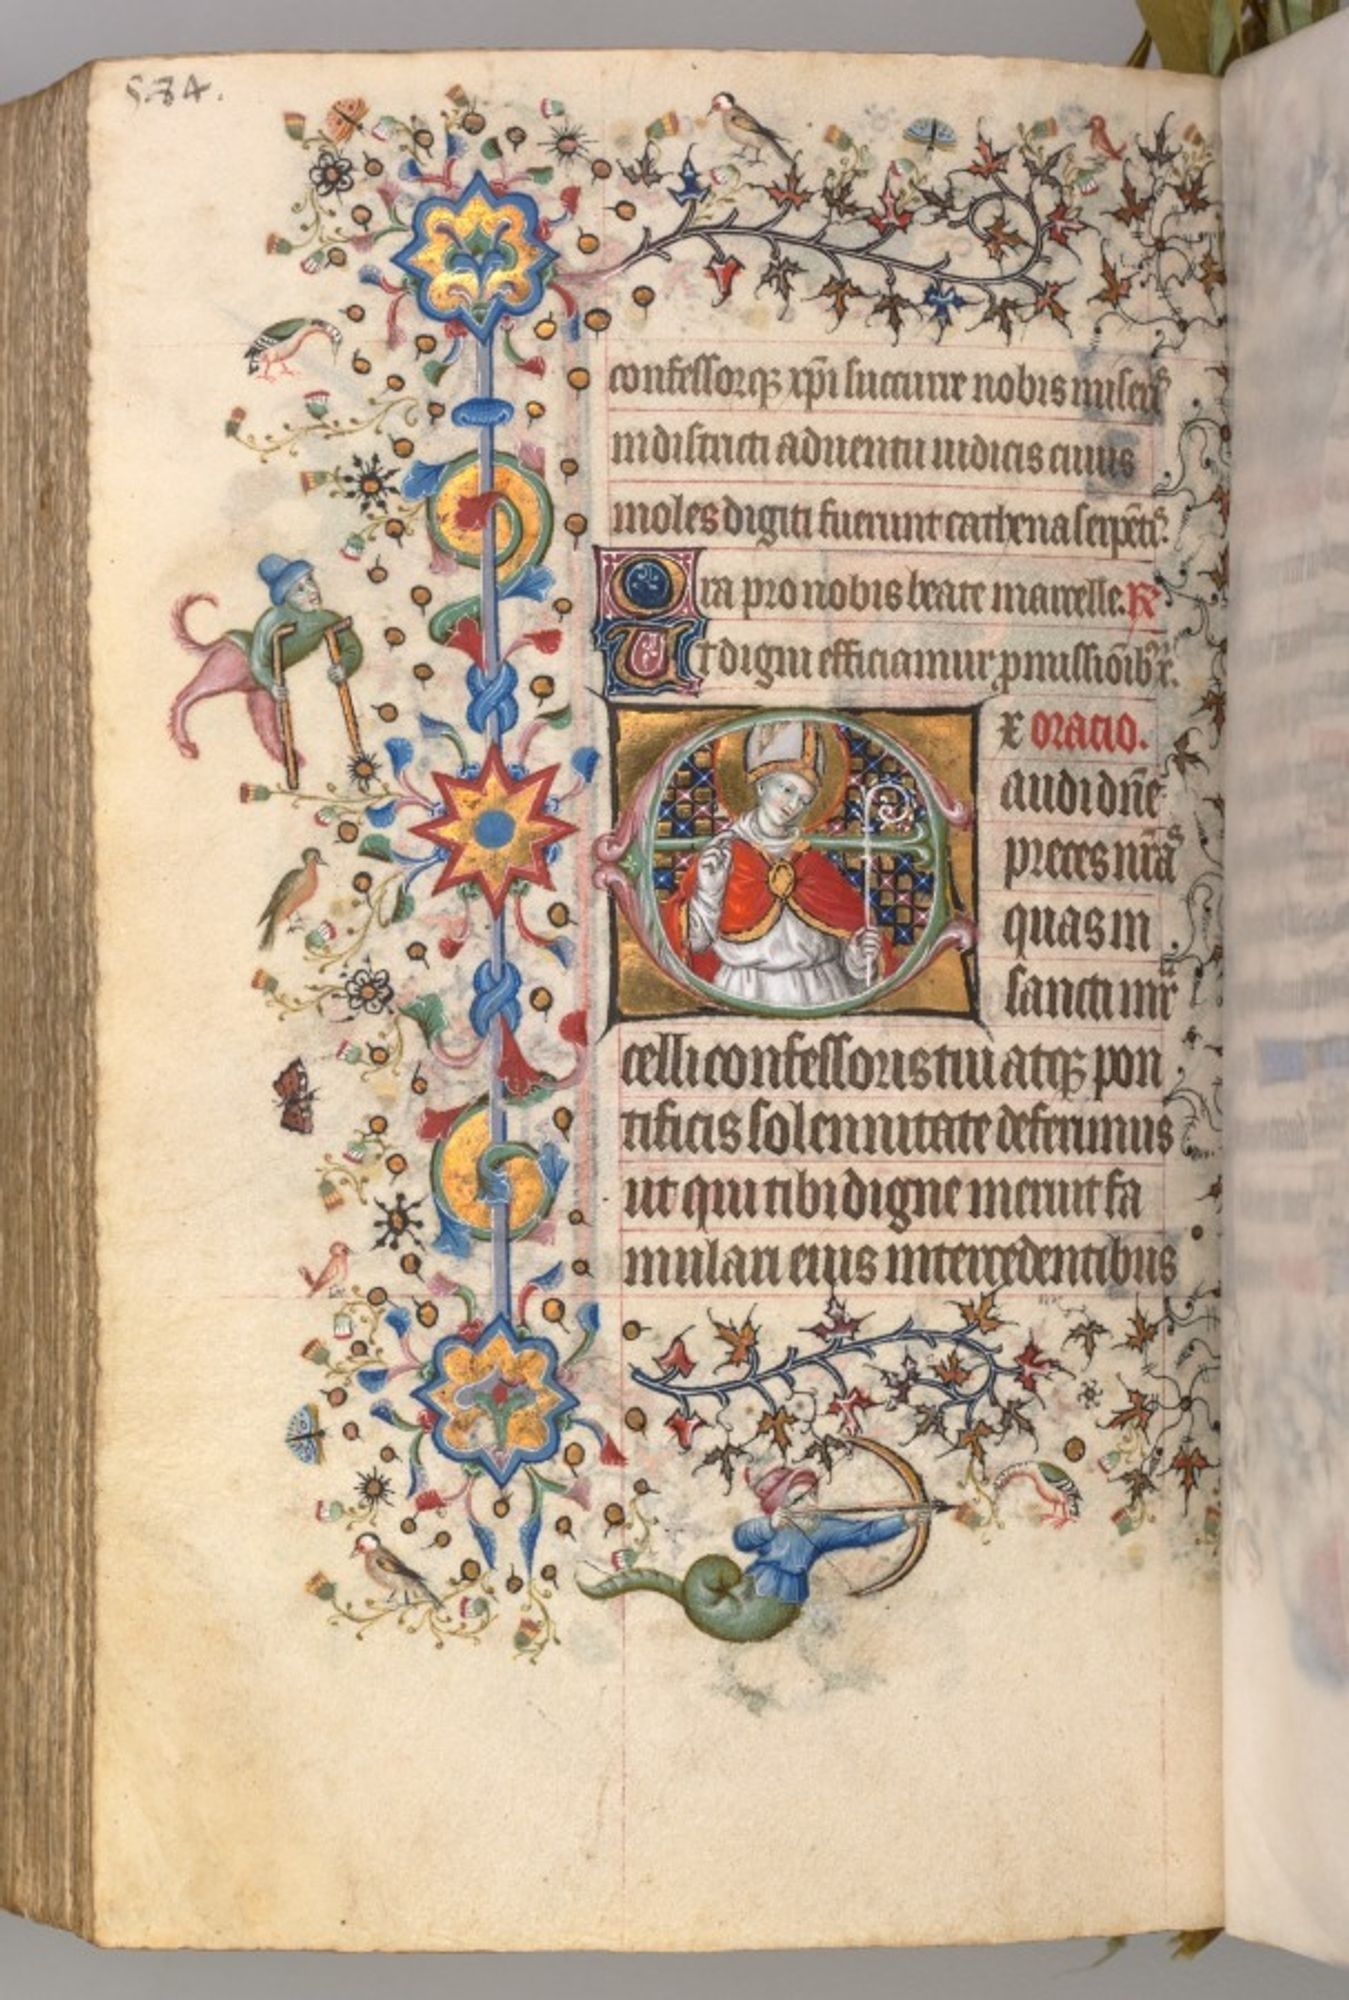 574.
confessorqȝ xp̄i succurre nobis miseris
in districti aduentu iudicis cuius
moles digiti fuerunt cathena serpētis.
Ora pro nobis beate marcelle. R
Ut digni efficiamur pmissiōib' x.
x oracio.
Eaudi dn̄e
preces nr̄as
quas in
sancti mr
celli confessoris tui atqȝ pon
tificis solennitate deferimus
ut qui tibi digne meruit fa
mulari eius intercedentibus